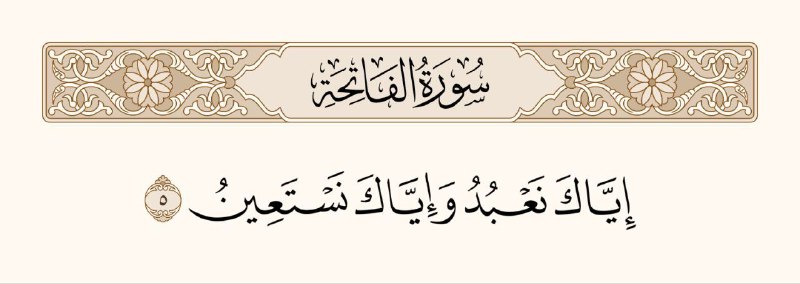 سُورَةُ الفَاتِحَةِ
إِيَّاكَ نَعۡبُدُ وَإِيَّاكَ نَسۡتَعِينُ ٥